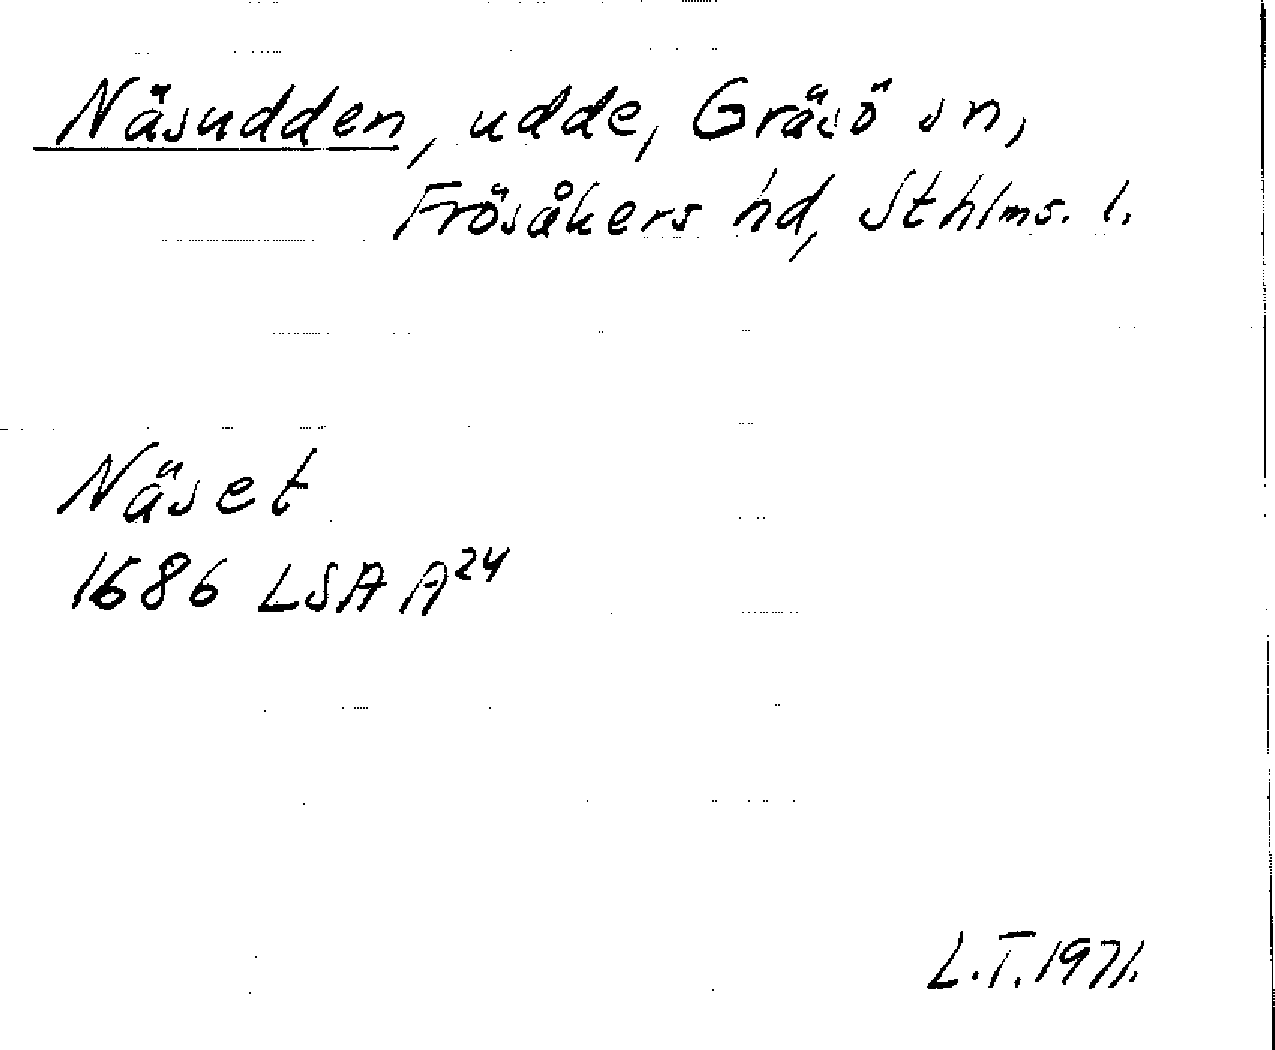 Näsudden, udde, Gräsö sn,
Frösåkers hd, Sthlms. l.
Näset
1686 LSA A²⁴
L.T. 1971.